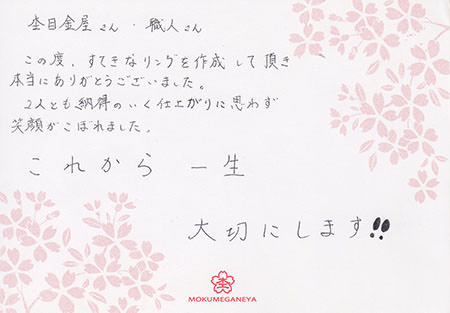 杢目金屋さん・職人さん
この度、すてきなリングを作成して頂き
本当にありがとうございました。
2人とも納得のいく仕上がりに思わず
笑顔がこぼれました。
これから 一生
大切にします!!
杢
MOKUMEGANEYA